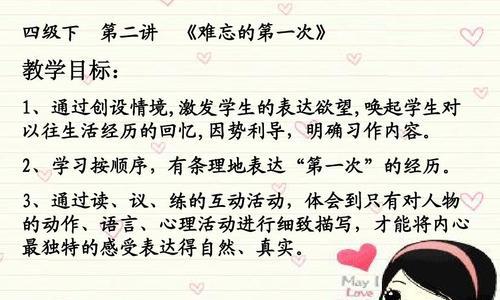 四级下　第二讲　《难忘的第一次》
教学目标：
1、通过创设情境,激发学生的表达欲望,唤起学生对
以往生活经历的回忆,因势利导，明确习作内容。
2、学习按顺序，有条理地表达“第一次”的经历。
3、通过读、议、练的互动活动，体会到只有对人物
的动作、语言、心理活动进行细致描写，才能将内心
最独特的感受表达得自然、真实。
May I
Love